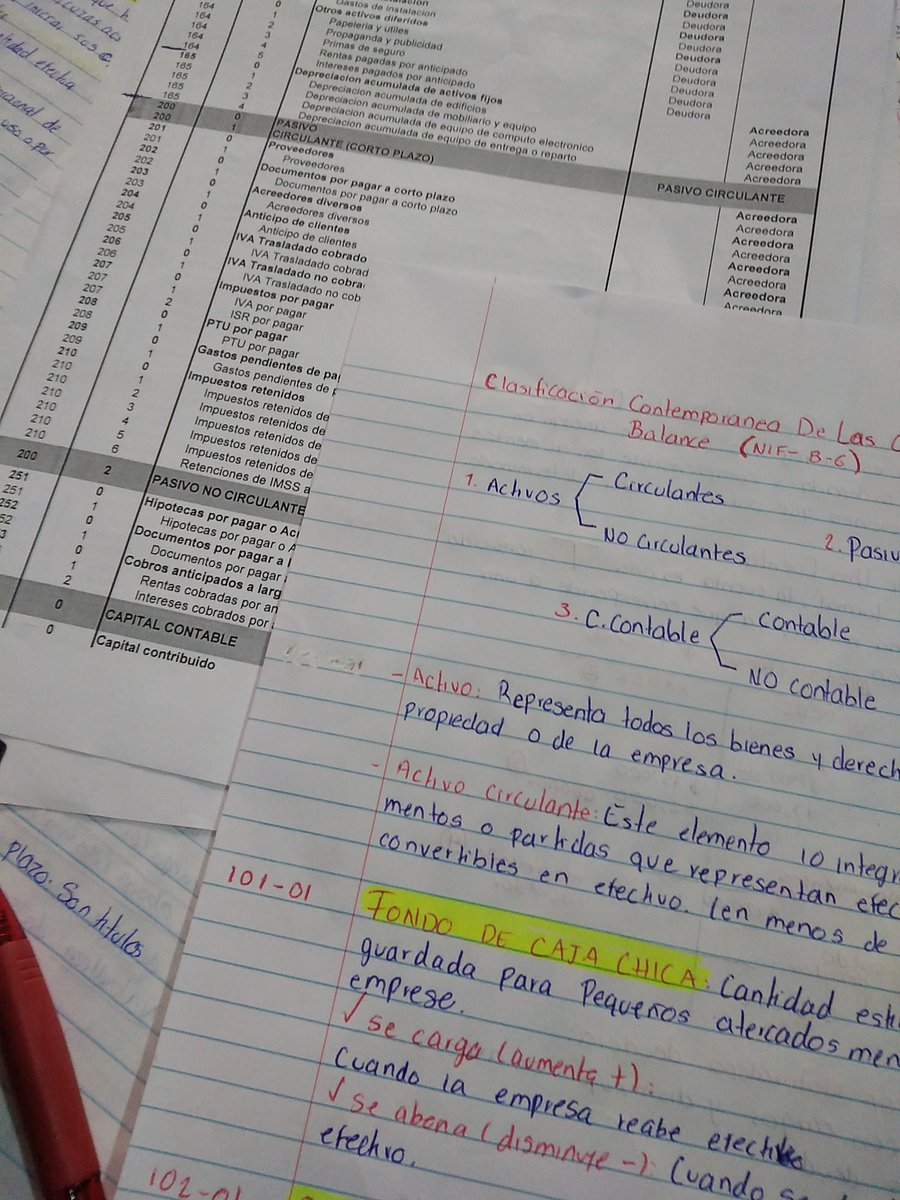 164 0 Gastos de instalacion Deudora
164 1 Otros activos diferidos Deudora
164 2 Papeleria y utiles Deudora
164 3 Propaganda y publicidad Deudora
164 4 Primas de seguro Deudora
165 5 Rentas pagadas por anticipado Deudora
165 0 Intereses pagados por anticipado Deudora
165 1 Depreciacion acumulada de activos fijos Deudora
165 2 Depreciacion acumulada de edificios Deudora
165 3 Depreciacion acumulada de mobiliario y equipo Acreedora
200 4 Depreciacion acumulada de equipo de computo electronico Acreedora
200 0 Depreciacion acumulada de equipo de entrega o reparto Acreedora
201 1 PASIVO Acreedora
201 0 CIRCULANTE (CORTO PLAZO) Acreedora
PASIVO CIRCULANTE
202 1 Proveedores Acreedora
202 0 Proveedores Acreedora
203 1 Documentos por pagar a corto plazo Acreedora
203 0 Documentos por pagar a corto plazo Acreedora
204 1 Acreedores diversos Acreedora
204 0 Acreedores diversos Acreedora
205 1 Anticipo de clientes Acreedora
205 0 Anticipo de clientes Acreedora
206 1 IVA Trasladado cobrado
206 0 IVA Trasladado cobrad
207 1 IVA Trasladado no cobra
207 0 IVA Trasladado no cob
207 1 Impuestos por pagar
208 2 IVA por pagar
208 0 ISR por pagar
209 1 PTU por pagar
209 0 PTU por pagar
210 1 Gastos pendientes de pa
210 0 Gastos pendientes de
210 1 Impuestos retenidos
210 2 Impuestos retenidos de
210 3 Impuestos retenidos de
210 4 Impuestos retenidos de
210 5 Impuestos retenidos de
6 Retenciones de IMSS a
200 2 PASIVO NO CIRCULANTE
251 0 Hipotecas por pagar o Ac
251 1 Hipotecas por pagar o A
252 0 Documentos por pagar a l
52 1 Documentos por pagar
3 0 Cobros anticipados a larg
1 Rentas cobradas por an
2 Intereses cobrados por
0 CAPITAL CONTABLE
0 Capital contribuido
Plazo: Son titulos
Clasificación Contemporanea De Las C
Balance (NIF-B-6)
1. Activos Circulantes
NO Circulantes
2. Pasiv
3. C. Contable Contable
NO contable
- Activo: Representa todos los bienes y derech
propiedad o de la empresa.
- Activo circulante: Este elemento lo integr
mentos o partidas que representan efec
convertibles en efectivo. (en menos de
101-01 FONDO DE CAJA CHICA: Cantidad est
guardada para Pequeños atercados men
emprese.
✓ se carga (aumenta +):
Cuando la empresa reabe efectivo
✓ se abona (disminuye -): Cuando s
efectivo.
102-01